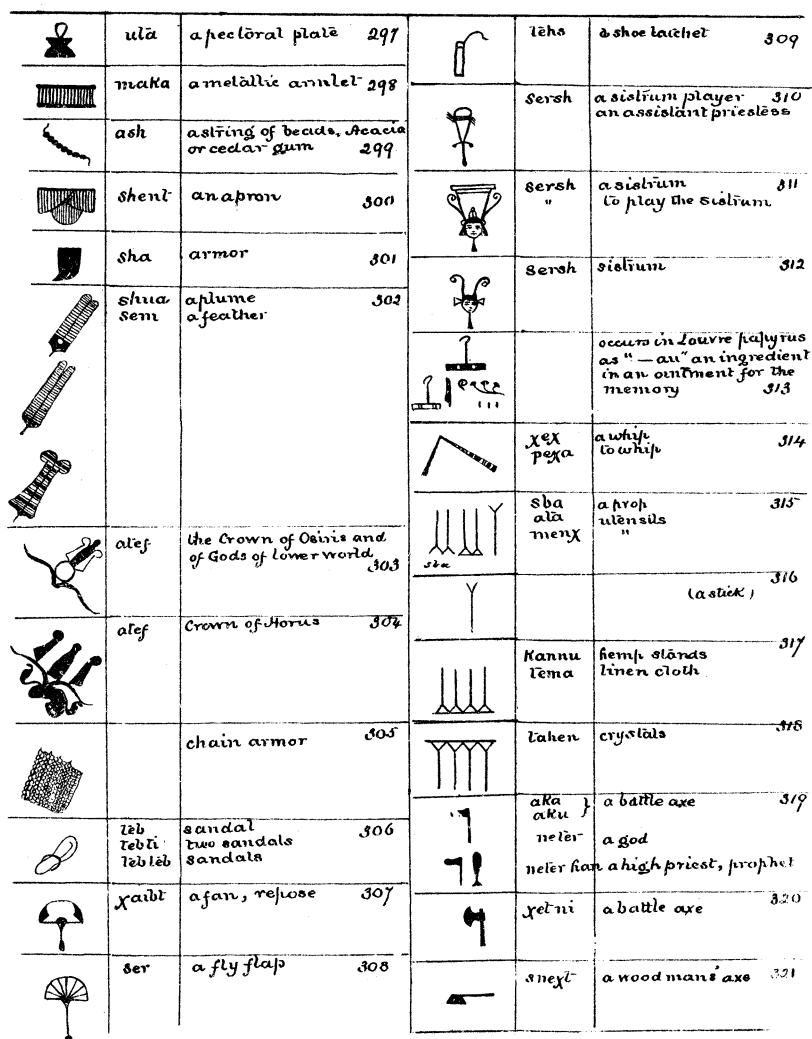 uta a pectoral plate 297
maka a metallic armlet 298
ash a string of beads, Acacia
or cedar gum 299
shent an apron 300
sha armor 301
shua a plume 302
sem a feather
atef the Crown of Osiris and
of Gods of lower world
303
atef Crown of Horus 304
chain armor 305
teb sandal 306
tebti two sandals
tebteb sandals
χaibt a fan, repose 307
ser a fly flap 308
tehs a shoe latchet 309
sersh a sistrum player 310
an assistant priestess
sersh a sistrum 311
" to play the sistrum
sersh sistrum 312
occurs in Louvre papyrus
as "—au" an ingredient
in an ointment for the
memory 313
χeχ a whip 314
peχa to whip
sba a prop 315
ata utensils
menχ "
sba
316
(a stick)
317
Kannu hemp stands
tema linen cloth
318
tahen crystals
aka } a battle axe 319
aku
neter a god
neter han a high priest, prophet
χetni a battle axe 320
sneχt a woodmans' axe 321